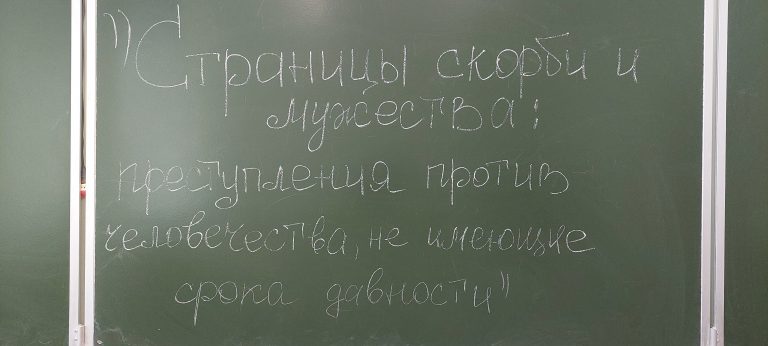 "Страницы скорби и
мужества:
преступления против
человечества, не имеющие
срока давности"